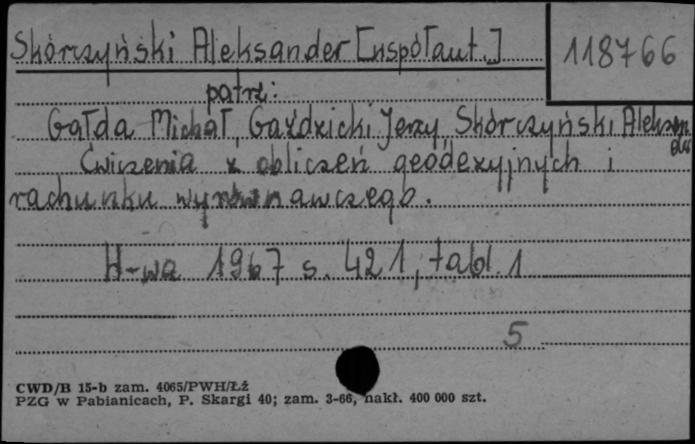 Skórczyński Aleksander [współaut.]
118766
patrz:
Gałda Michał, Gaździcki Jerzy, Skórczyński Aleksan
der
Ćwiczenia z obliczeń geodezyjnych i
rachunku wyrównawczego.
W-wa 1967 s. 421, tabl. 1
5
CWD/B 15-b zam. 4065/PWH/Łź
PZG w Pabianicach, P. Skargi 40; zam. 3-66, nakł. 400 000 szt.